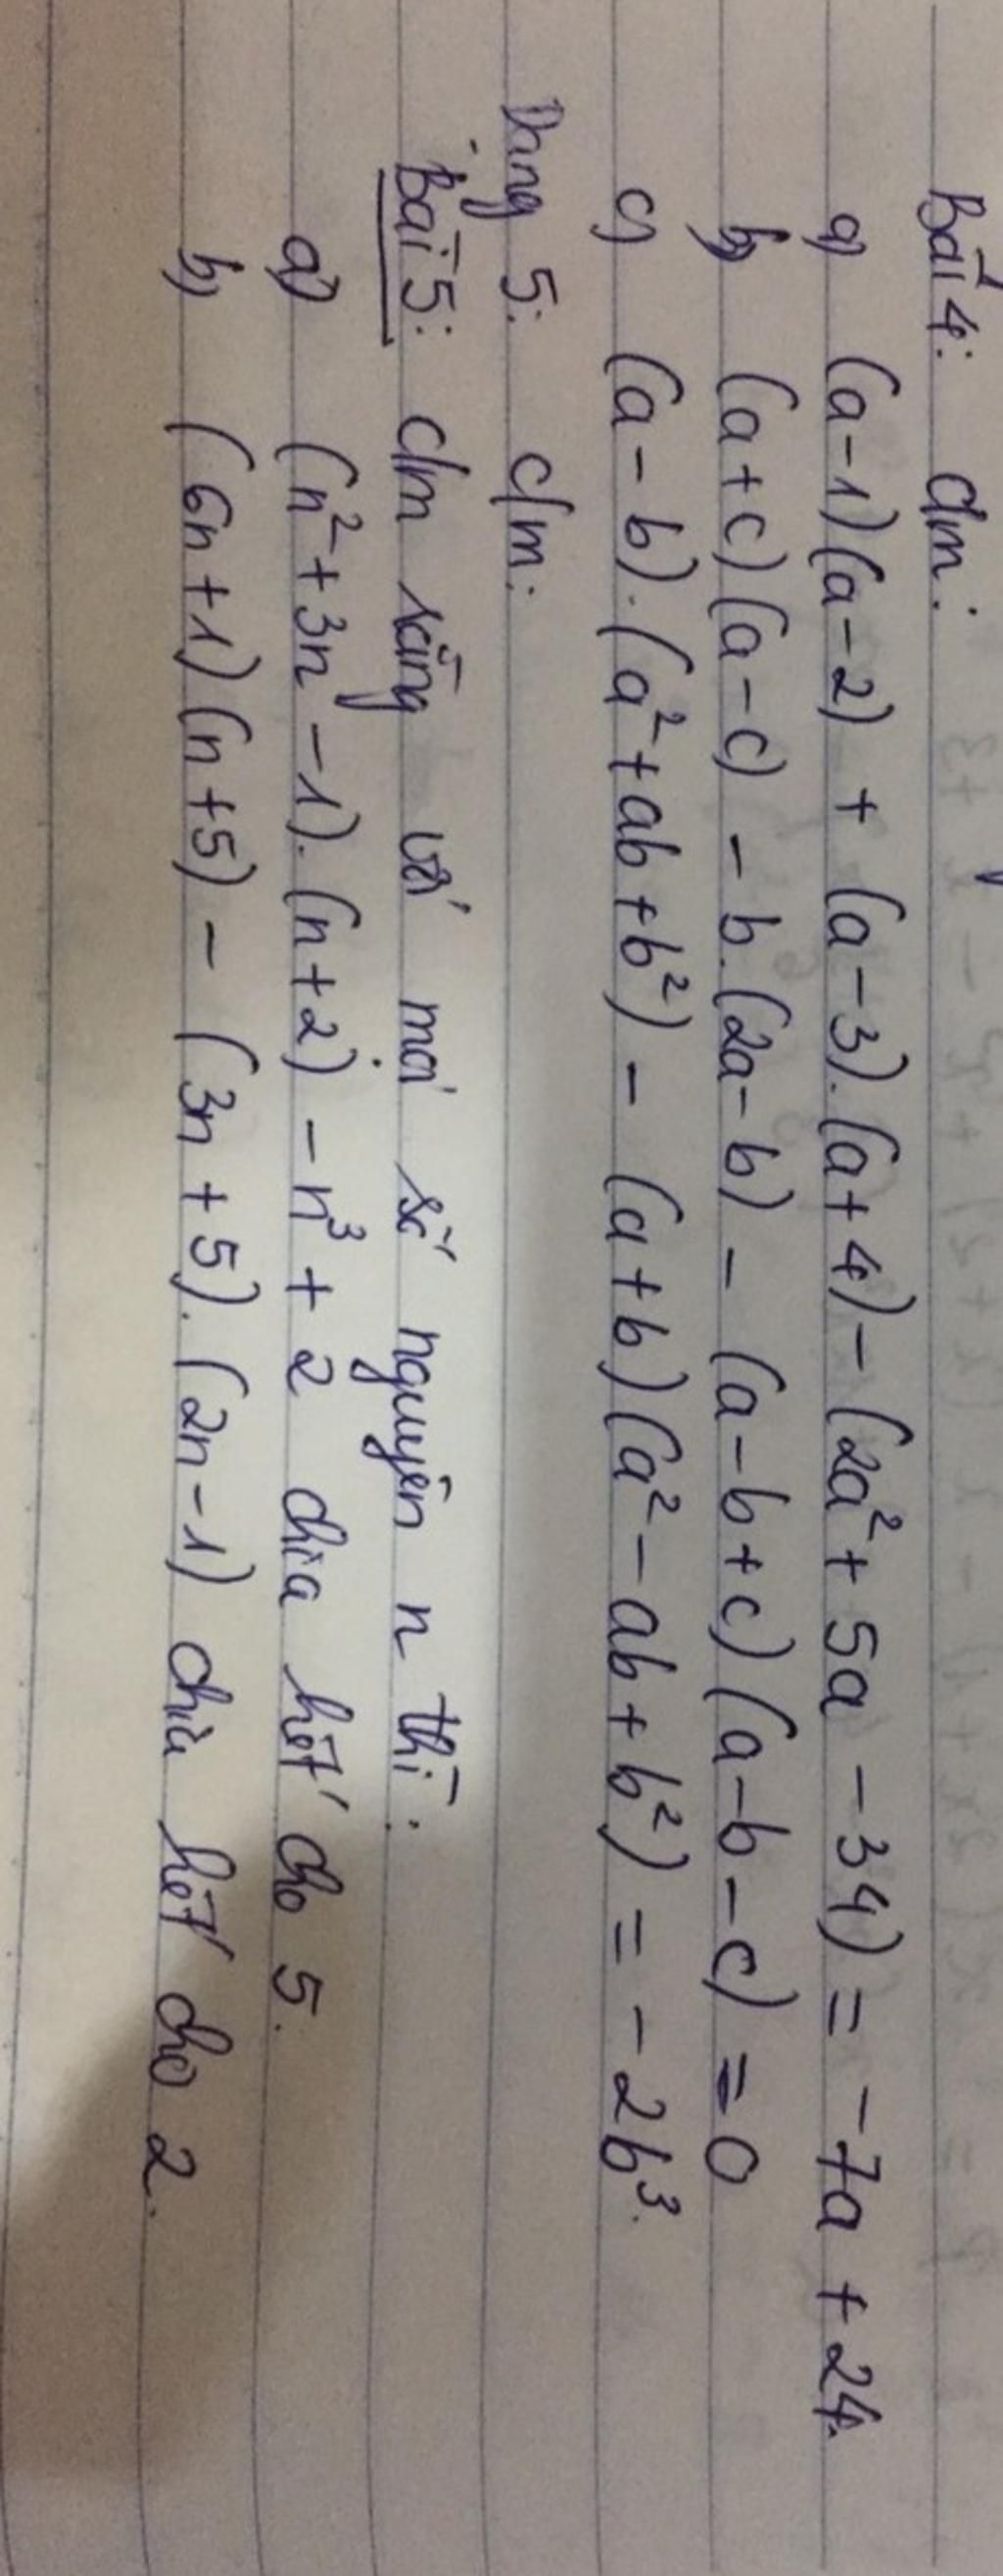 Bài 4: c/m:
a) (a-1)(a-2) + (a-3).(a+4) - (2a² + 5a - 34) = -7a + 24.
b) (a+c)(a-c) - b.(2a-b) - (a-b+c)(a-b-c) = 0
c) (a-b).(a²+ab+b²) - (a+b)(a²-ab+b²) = -2b³.
Dạng 5: c/m:
Bài 5: c/m rằng với mọi số nguyên n thì:
a) (n²+3n-1).(n+2) - n³ + 2 chia hết cho 5.
b) (6n+1)(n+5) - (3n+5).(2n-1) chia hết cho 2.